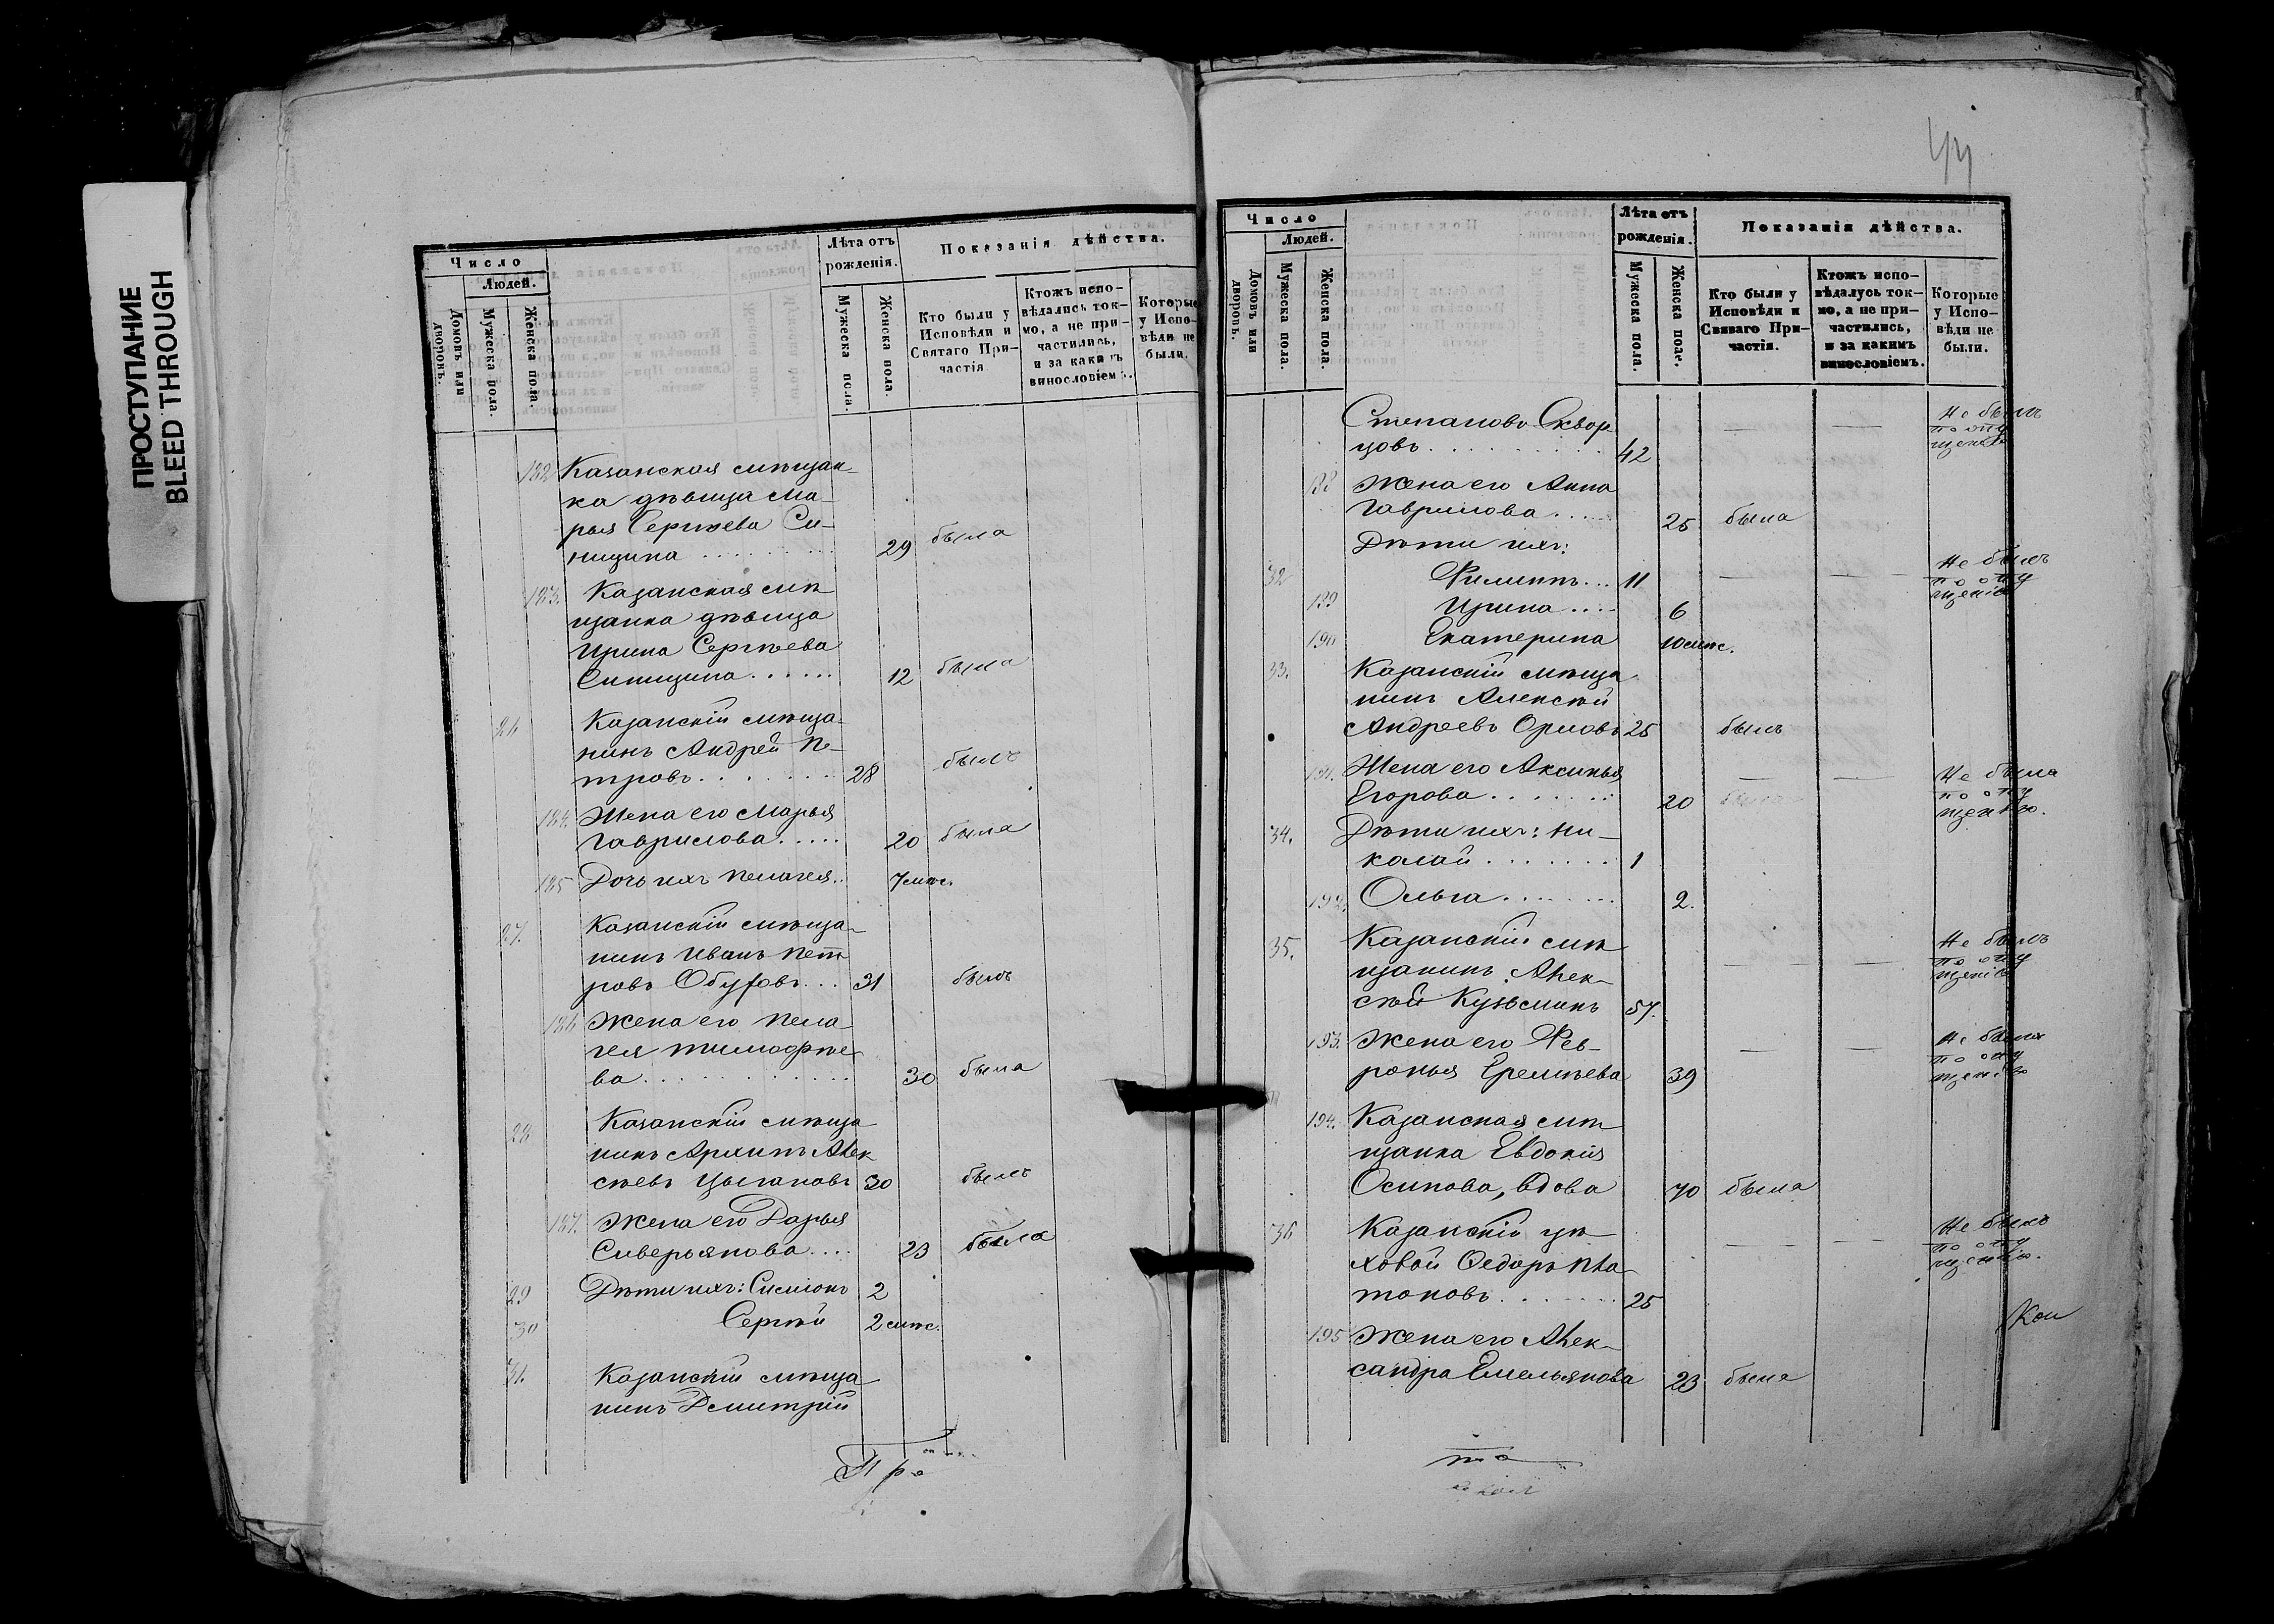 ПРОСТУПАНИЕ
BLEED THROUGH
Число
Людей.
Домовъ или дворовъ.
Мужеска пола.
Женска пола.
Лѣта отъ
рожденія.
Мужеска пола.
Женска пола.
Показанія дѣйства.
Кто были у
Исповѣди и
Святаго При-
частія
Ктожъ испо-
вѣдались ток-
мо, а не при-
частились,
и за какимъ
винословіемъ.
Которые
у Испо-
вѣди не
были.
182 Казанская мѣщан-
ка дѣвица Ма-
рья Сергѣева Си-
ницина 29 была
183. Казанская мѣ
щанка дѣвица
Ирина Сергѣева
Синицина 12 была
26 Казанскій мѣща-
нинъ Андрей Пе-
тровъ 28 былъ
184. Жена его Марья
Гаврилова 20 была
185 Дочь ихъ Пелагея 7 мѣс.
27. Казанскій мѣща-
нинъ Иванъ Пет
ровъ Обуховъ 31 былъ
186 Жена его Пела
гея Тимофѣе
ва 30 была
28 Казанскій мѣща
нинъ Архипъ Алек
сѣевъ Цыгановъ 30 былъ
187. Жена его Дарья
Сиверьянова 23 была
29 Дѣти ихъ: Симіонъ 2
30 Сергѣй 2 мѣс.
31. Казанскій мѣща
нинъ Дмитрій
Число
Людей.
Домовъ или дворовъ.
Мужеска пола.
Женска пола.
Лѣта отъ
рожденія.
Мужеска пола.
Женска полс.
Показанія дѣйства.
Кто были у
Исповѣди и
Святаго При-
частія.
Ктожъ испо-
вѣдалусь ток-
мо, а не при-
частились,
и за какимъ
винословіемъ.
Которые
у Испо-
вѣди не
были.
Степановъ Сквор
цовъ 42 Не былъ
по опу
щенію
188 Жена его Анна
Гаврилова 25 была
Дѣти ихъ:
32 Филиппъ 11 Не былъ
по опу
щенію
189 Ирина 6
190 Екатерина 10 мѣс.
33. Казанскій мѣща
нинъ Алексѣй
Андреевъ Орловъ 25 былъ
191. Жена его Аксинья
Егорова 20 Не была
по опу
щенію.
34. Дѣти ихъ: Ни-
колай 1
192. Ольга 2.
35. Казанскій мѣ
щанинъ Алек-
сѣй Кузьминъ 57. Не былъ
по опу
щенію
193. Жена его Фев-
ронья Еремѣева 39 Не была
по опу
щенію
194. Казанская мѣ
щанка Евдокія
Осипова, вдова 70 была
36 Казанскій це
ховой Федоръ Пла
тоновъ 25 Не былъ
по опу
щенію.
195 Жена его Алек-
сандра Емельянова 23 была